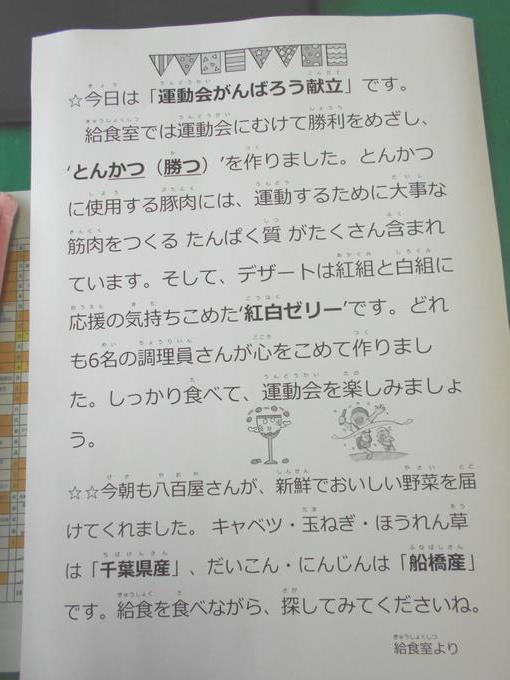 ☆今日は「運動会がんばろう献立」です。
給食室では運動会にむけて勝利をめざし、
‘とんかつ（勝つ）’を作りました。とんかつ
に使用する豚肉には、運動するために大事な
筋肉をつくる たんぱく質 がたくさん含まれ
ています。そして、デザートは紅組と白組に
応援の気持ちこめた‘紅白ゼリー’です。どれ
も6名の調理員さんが心をこめて作りまし
た。しっかり食べて、運動会を楽しみましょ
う。
☆☆今朝も八百屋さんが、新鮮でおいしい野菜を届
けてくれました。 キャベツ・玉ねぎ・ほうれん草
は「千葉県産」、だいこん・にんじんは「船橋産」
です。給食を食べながら、探してみてくださいね。
給食室より